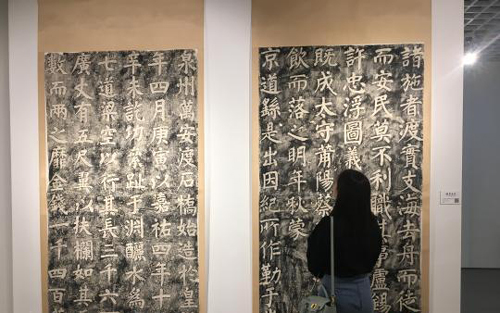 泉州萬安渡石橋始造於皇
年四月庚寅以嘉祐四年十
辛未訖功絫趾于淵釃水為
七道梁空以行其長三千六
廣丈有五尺翼以扶欄如其
數而兩之靡金錢一千四百
諸施者渡實支海去舟而徒
而安民莫不利職其事盧錫
許忠浮圖義
既成太守莆陽蔡
飲而落之明年秋蒙
京道繇是出因紀所作勒于